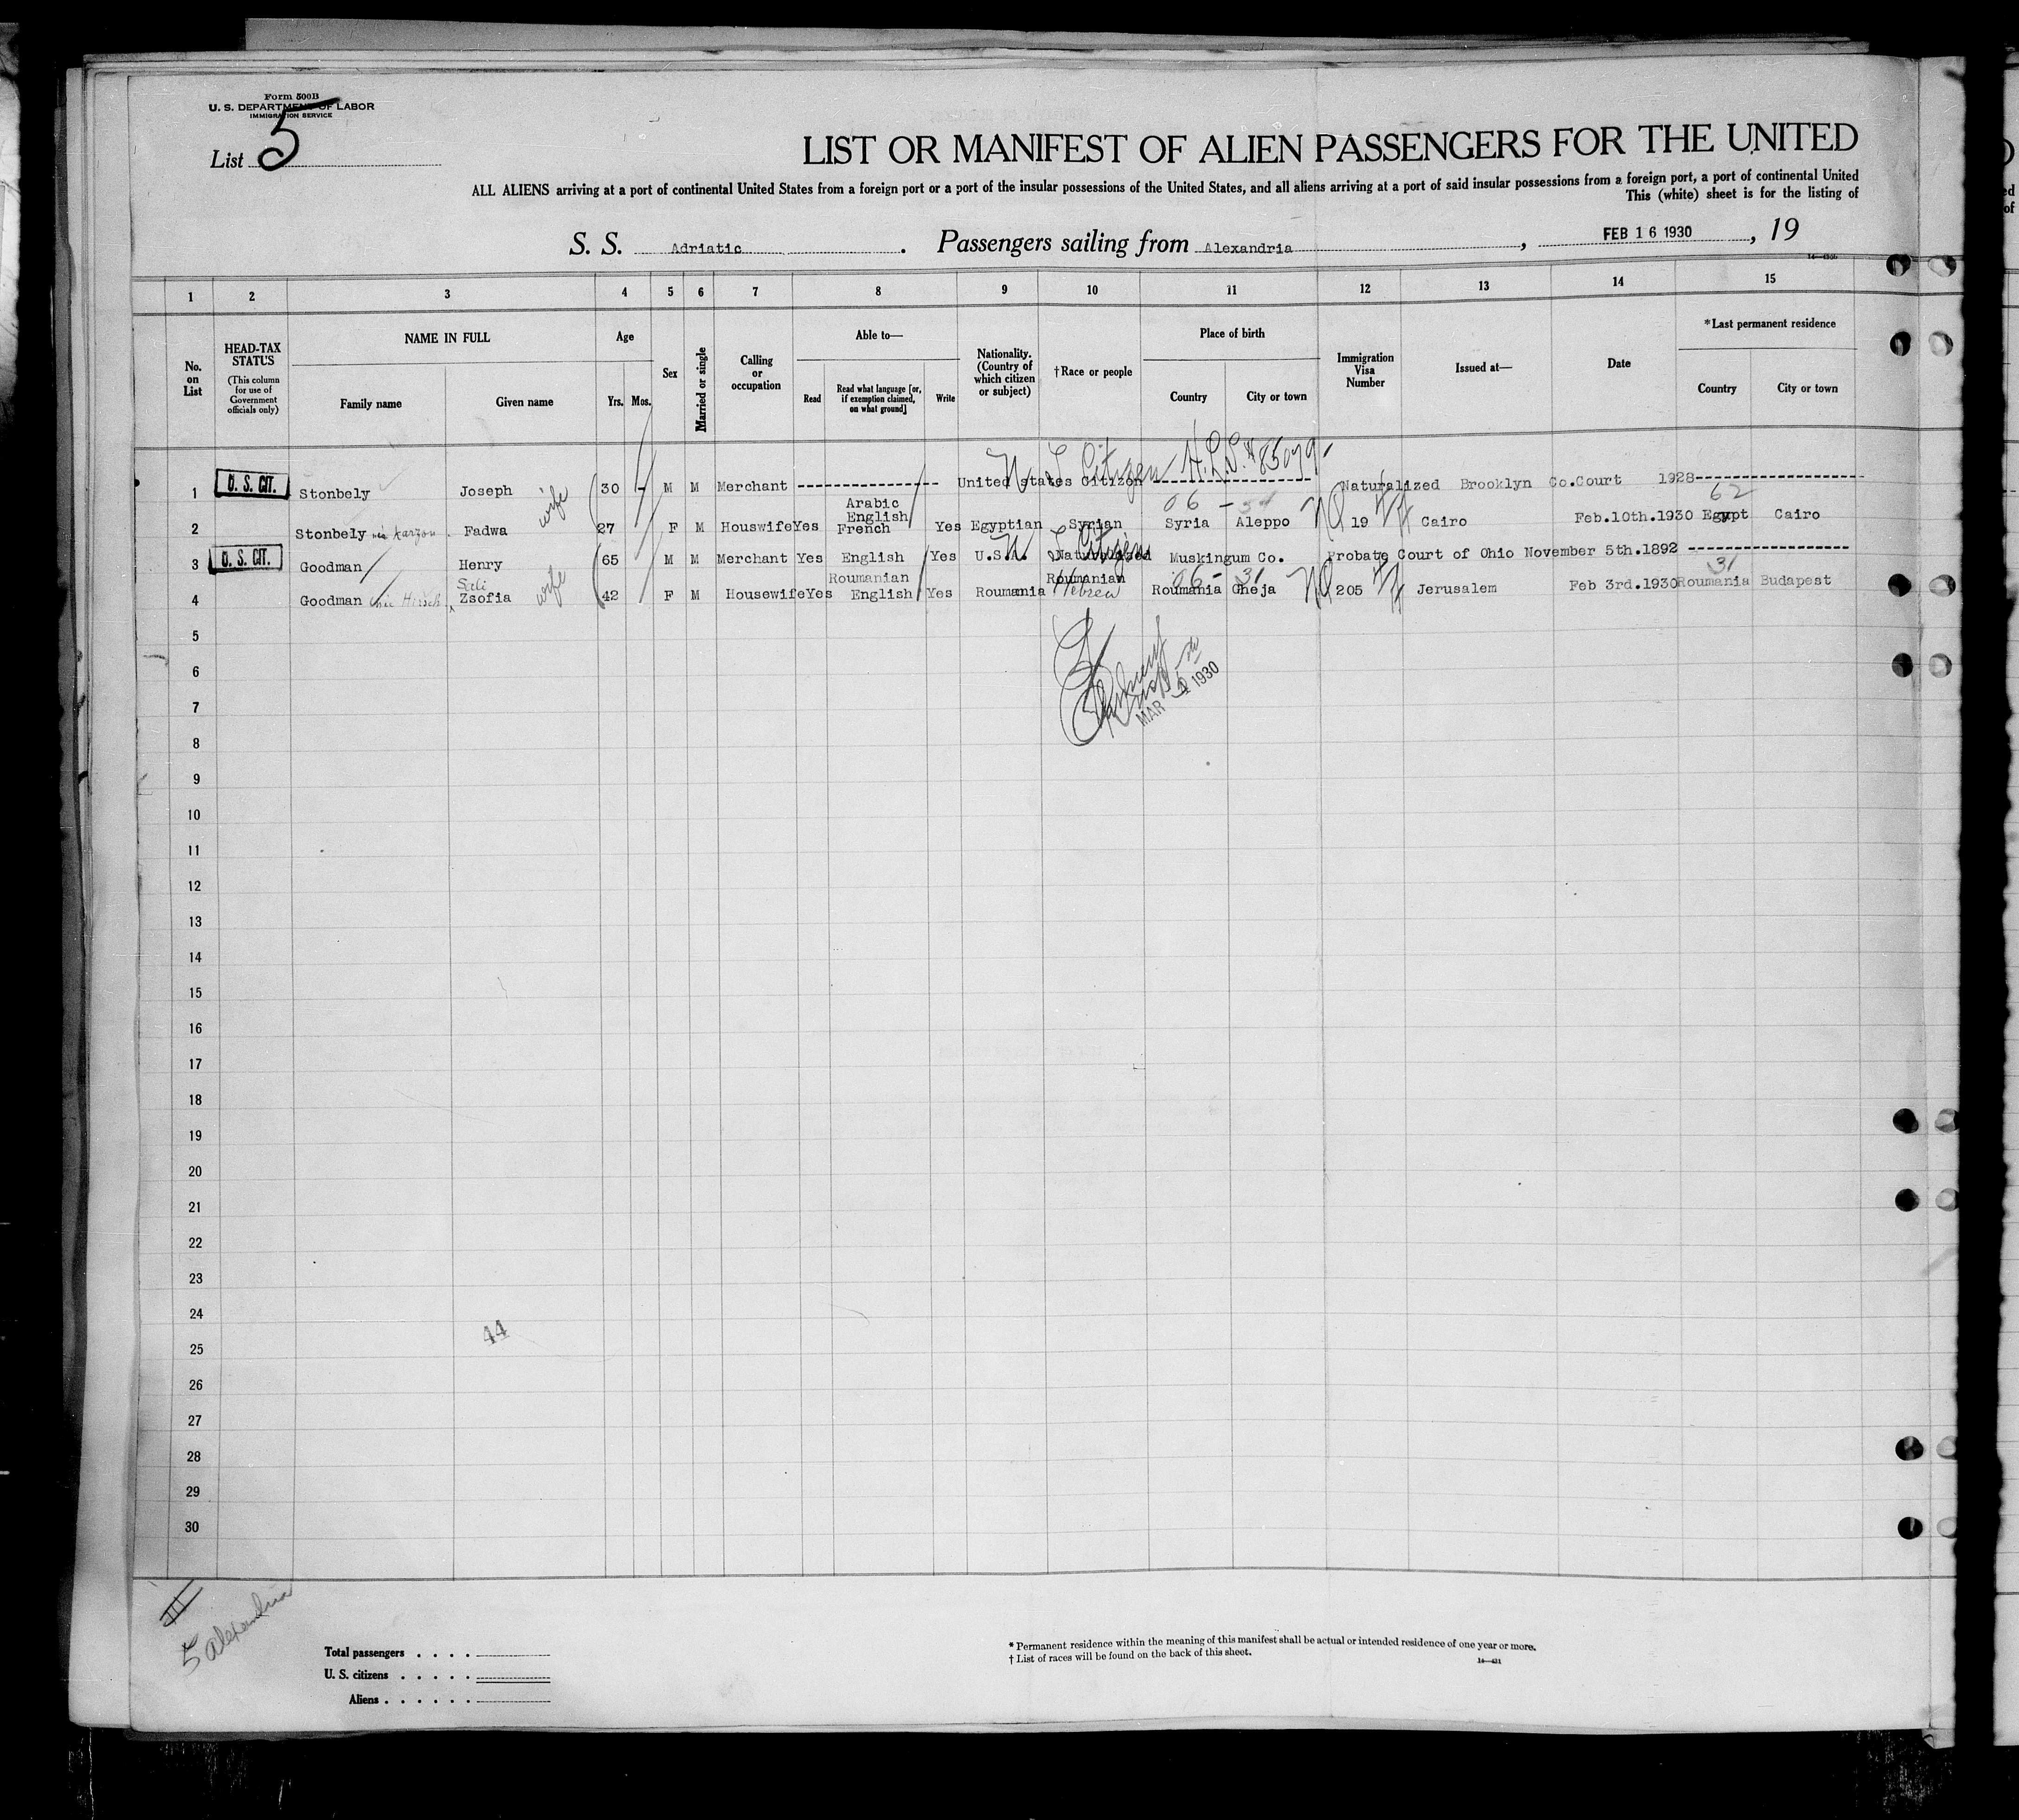 Form 500B
U. S. DEPARTMENT OF LABOR
IMMIGRATION SERVICE
List 5
LIST OR MANIFEST OF ALIEN PASSENGERS FOR THE UNITED
ALL ALIENS arriving at a port of continental United States from a foreign port or a port of the insular possessions of the United States, and all aliens arriving at a port of said insular possessions from a foreign port, a port of continental United
This (white) sheet is for the listing of
S. S. Adriatic. Passengers sailing from Alexandria, FEB 16 1930, 19
1 2 3 4 5 6 7 8 9 10 11 12 13 14 15
No. on List
HEAD-TAX STATUS
(This column for use of Government officials only)
NAME IN FULL
Family name
Given name
Age
Yrs. Mos.
Sex
Married or single
Calling or occupation
Able to—
Read
Read what language [or, if exemption claimed, on what ground]
Write
Nationality. (Country of which citizen or subject)
†Race or people
Place of birth
Country
City or town
Immigration Visa Number
Issued at—
Date
*Last permanent residence
Country
City or town
U.S. Citizen
1 U. S. CIT. Stonbely Joseph 30 M M Merchant United states Citizen Naturalized Brooklyn Co.Court 1928
2 Stonbely Fadwa wife 27 F M Houswife Yes Arabic English French Yes Egyptian Syrian Syria Aleppo 19 Cairo Feb.10th.1930 Egypt Cairo
06 - 62
3 U. S. CIT. Goodman Henry 65 M M Merchant Yes English Yes U.S.A. Naturalized Muskingum Co. Probate Court of Ohio November 5th.1892
4 Goodman née Hirsch Zsofia wife 42 F M Housewife Yes Roumanian English Yes Roumania Roumanian Hebrew Roumania Gheja 205 Jerusalem Feb 3rd.1930 Roumania Budapest
06 - 31 31
5
6
7
MAR 1930
8
9
10
11
12
13
14
15
16
17
18
19
20
21
22
23
24
44
25
26
27
28
29
30
5 Alexandria
Total passengers
U. S. citizens
Aliens
* Permanent residence within the meaning of this manifest shall be actual or intended residence of one year or more.
† List of races will be found on the back of this sheet.